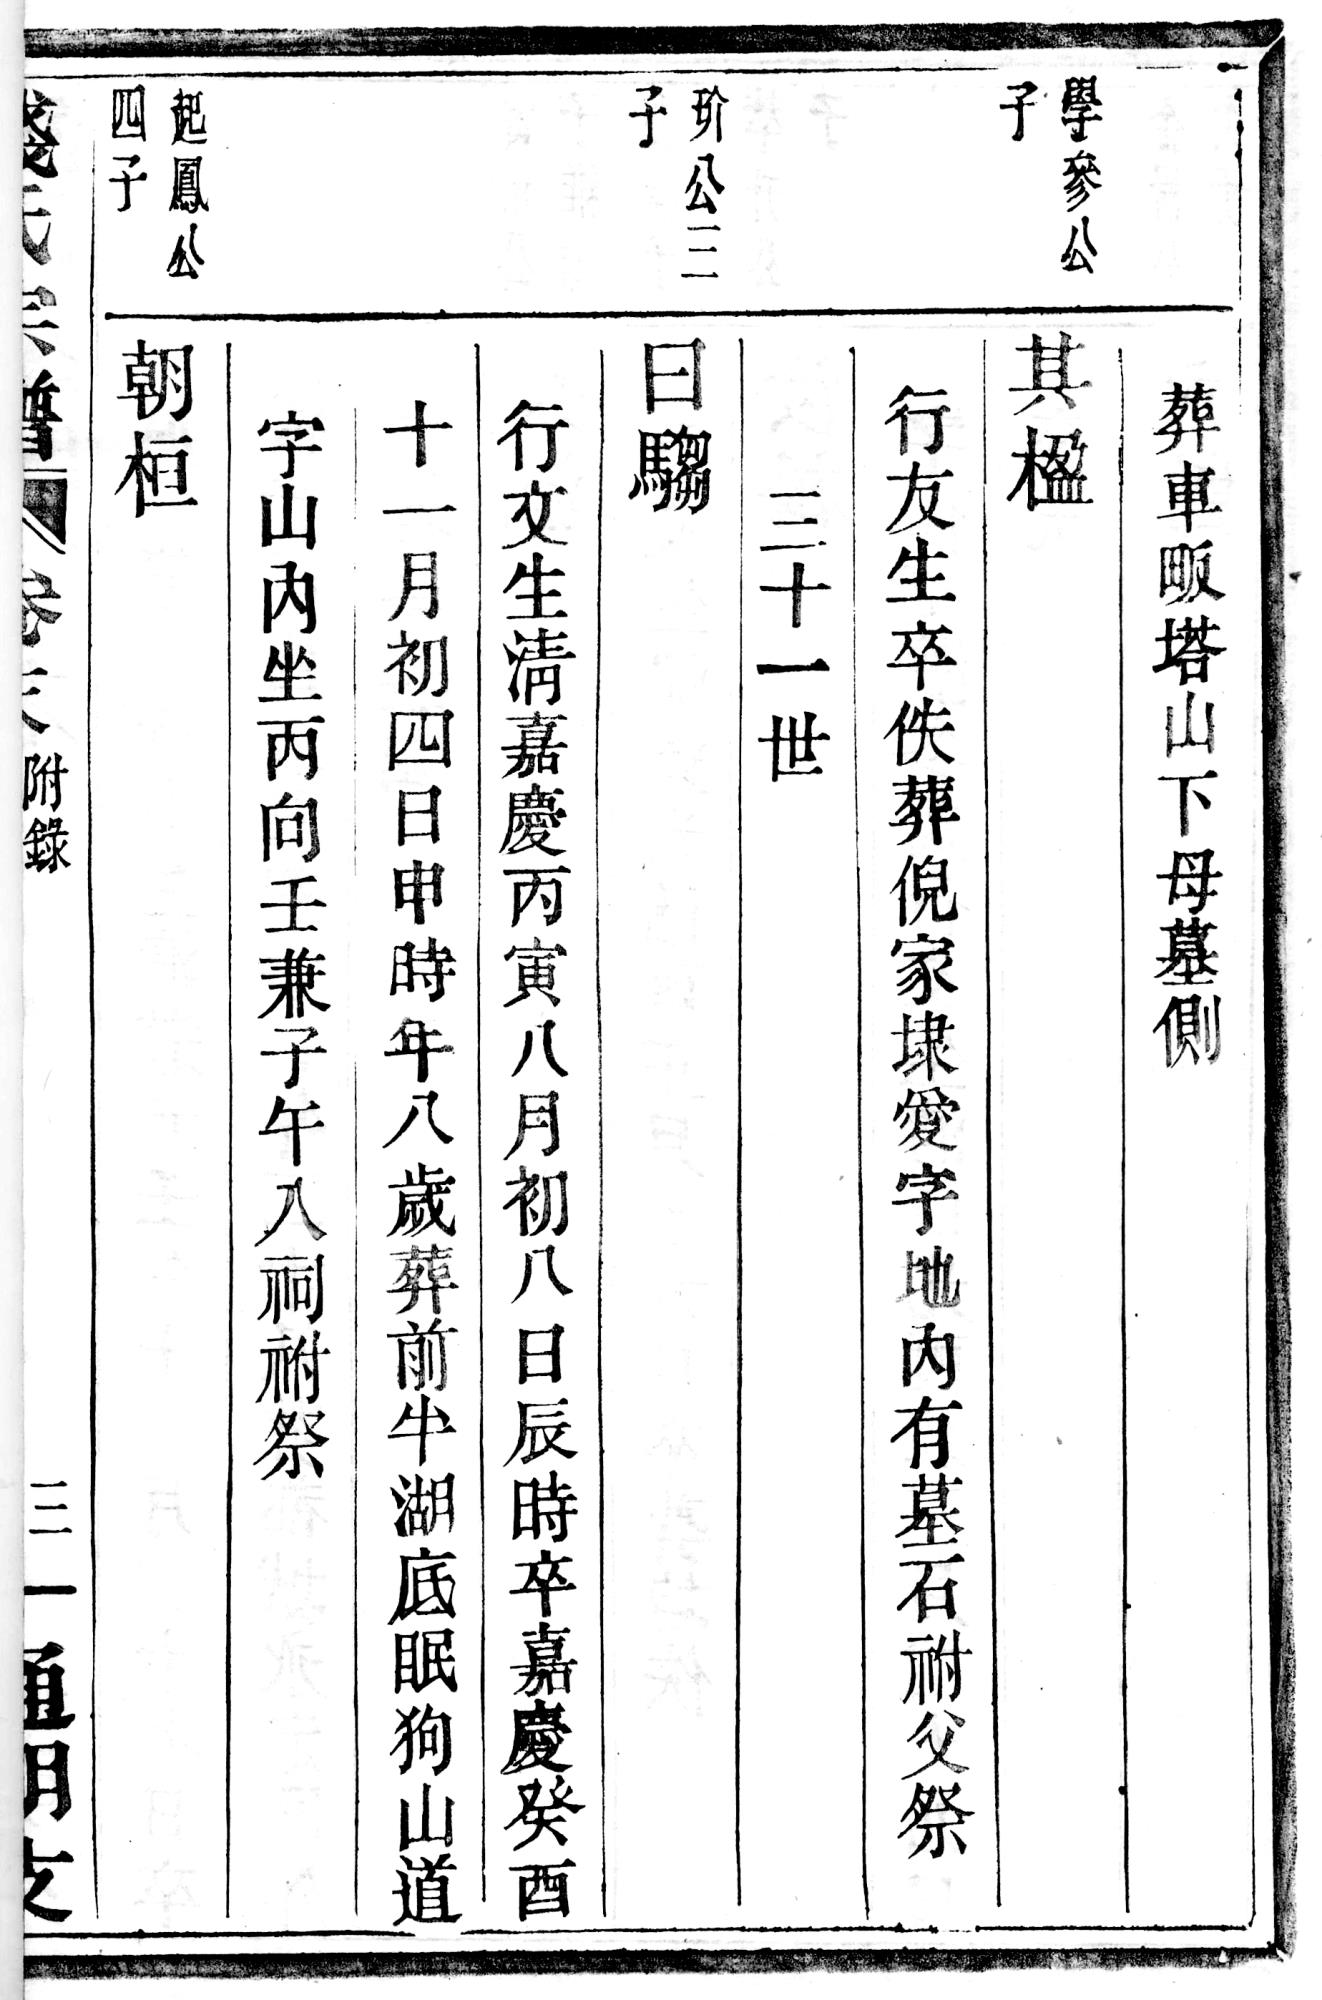 葬車畈塔山下母墓側
學參公
子
其楹
行友生卒佚葬倪家埭愛字地內有墓石祔父祭
三十一世
玠公三
子
曰騶
行文生淸嘉慶丙寅八月初八日辰時卒嘉慶癸酉
十一月初四日申時年八歲葬前牛湖底眠狗山道
字山內坐丙向壬兼子午入祠祔祭
起鳳公
四子
朝桓
氏宗譜
卷末 附錄
三一 通明支